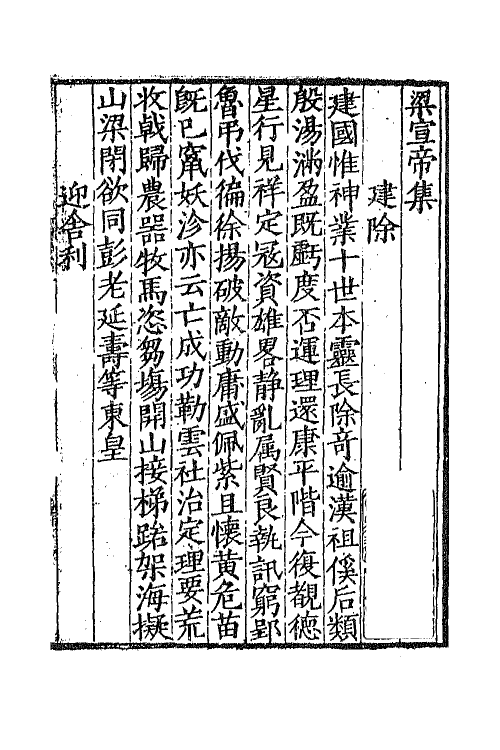 梁宣帝集
建除
建國惟神業十世本靈長除苛逾漢祖傒后類
殷湯滿盈既虧度否運理還康平階今復覩德
星行見祥定冦資雄畧静亂属賢良執訊窮郢
魯弔伐徧徐揚破敵動庸盛佩紫且懷黄危苗
既巳竄妖沴亦云亡成功勒雲社治定理要荒
收戟歸農器牧馬恣芻塲開山接梯路架海擬
山梁閉欲同彭老延壽等東皇
迎舍利